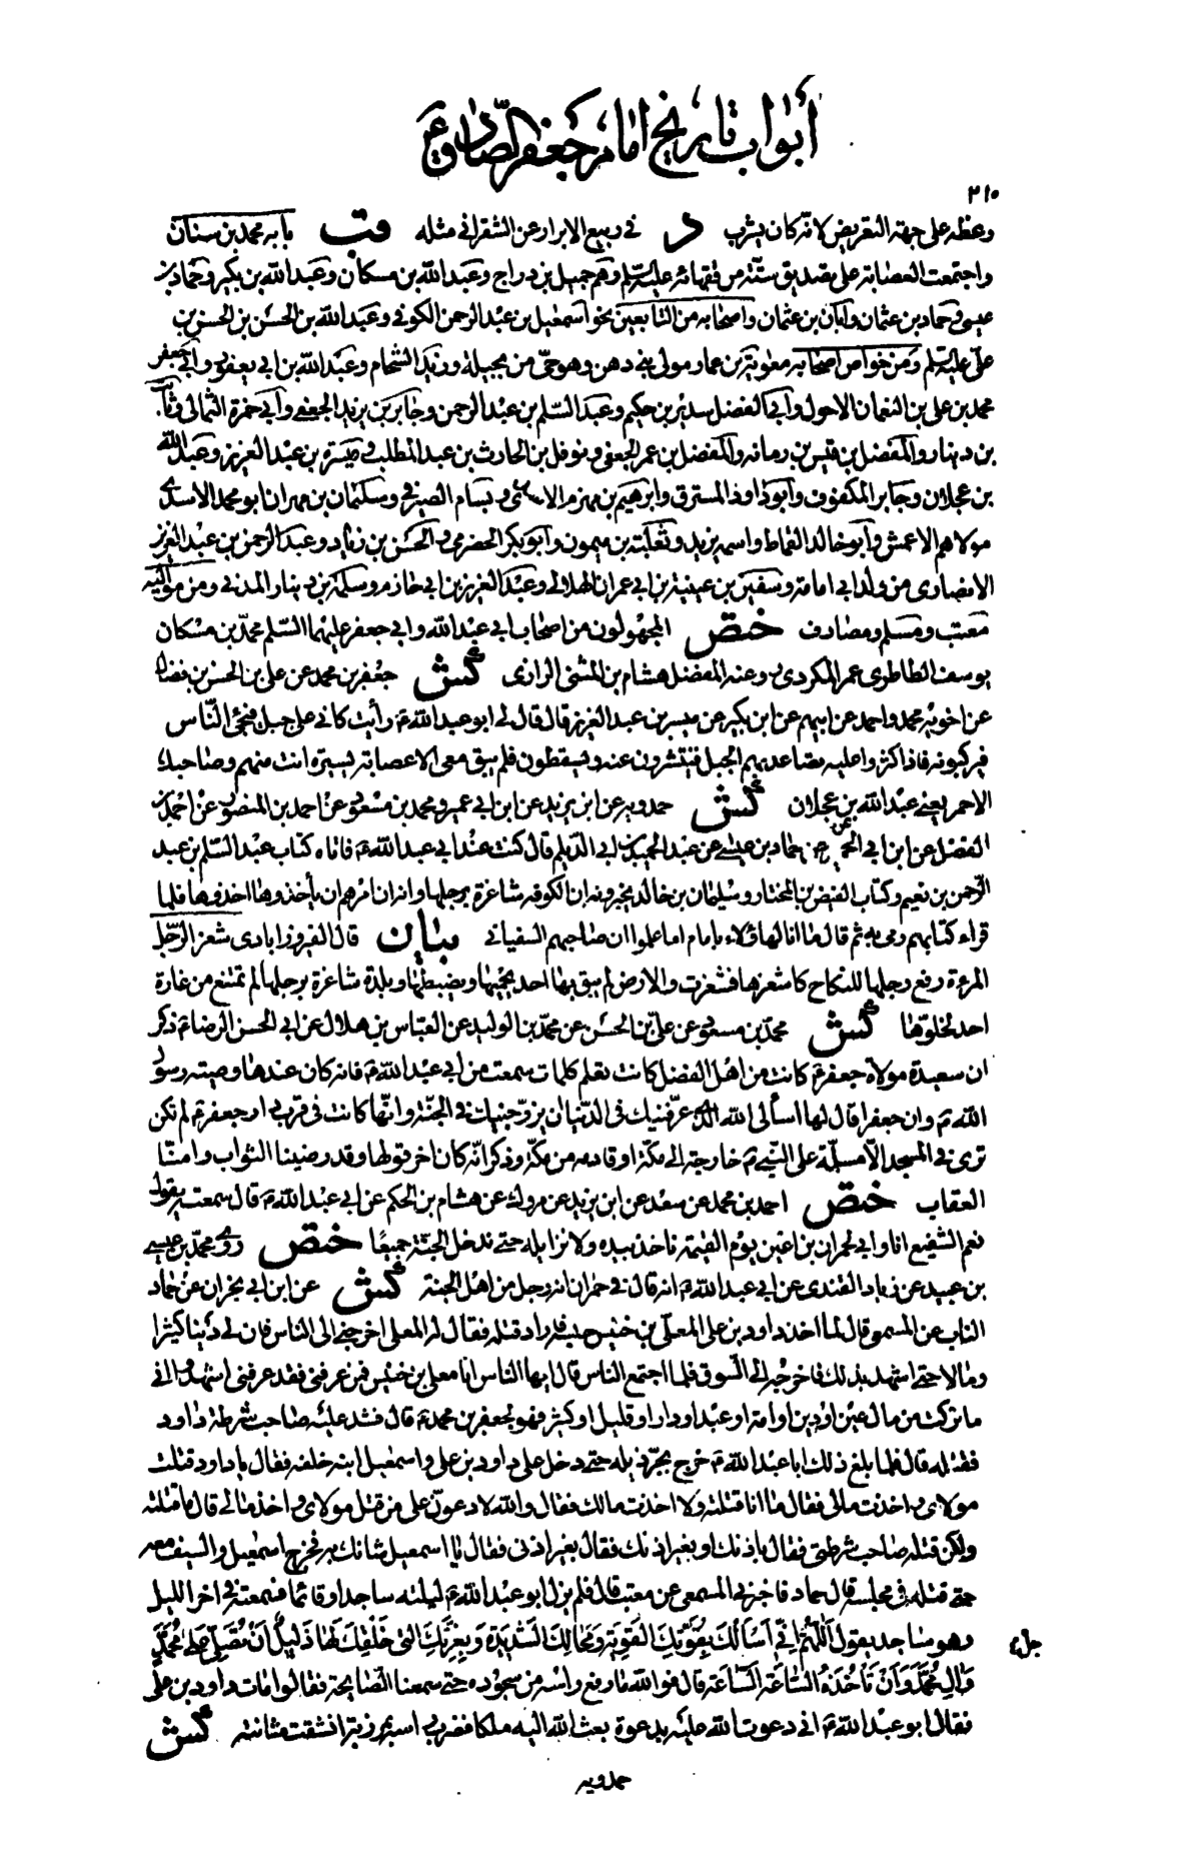 أبواب تاريخ امام جعفر الصّادق ع
٢١٠
وعظه على جهة التعريض لانه كان يشرب د في ربيع الابرار عن الشقراني مثله قب بابه محمد بن سنان
واجتمعت العصابة على تصديق ستة من فقهائه عليه السّلم وهم جميل بن دراج وعبد الله بن مسكان وعبد الله بن بكير وحماد بن
عيسى وحماد بن عثمان وابان بن عثمان واصحابه من التابعين نحو اسمعيل بن عبد الرحمن الكوفي وعبد الله بن الحسن بن الحسن بن
علي عليه السّلم ومن خواص اصحابه معوية بن عمار مولى بني دهن وهو حي من بجيلة وزيد الشحام وعبد الله بن ابي يعفور وابي جعفر
محمد بن علي بن النعمان الاحول وابي الفضل سدير بن حكيم وعبد السّلم بن عبد الرحمن وجابر بن يزيد الجعفي وابي حمزة الثمالي وثابت
بن دينار والمفضل بن قيس بن رمانه والمفضل بن عمر الجعفي ونوفل بن الحارث بن عبد المطلب وميسرة بن عبد العزيز وعبد الله
بن عجلان وجابر المكفوف وابو داود المسترق وابرهيم بن مهزم الاسدي وبسام الصيرفي وسليمان بن مهران ابو محمد الاسدي
مولاهم الاعمش وابو خالد القماط واسمه يزيد وثعلبة بن ميمون وابو بكر الحضرمي والحسن بن زياد وعبد الرحمن بن عبد العزيز
الانصاري من ولد ابي امامة وسفين بن عيينة بن ابي عمران الهلالي وعبد العزيز بن ابي حازم وسلمة بن دينار المدني ومن مواليه
معتب ومسلم ومصادف ختص المجهولون من اصحاب ابي عبد الله وابي جعفر عليهما السّلم محمد بن مسكان
يوسف الطاطري عمر الكردي وعنه المفضل هشام بن المثنى الرازي كش جعفر بن محمد عن علي بن الحسن بن فضال
عن اخويه محمد واحمد عن ابيهم عن ابن بكير عن ميسر بن عبد العزيز قال قال لي ابو عبد الله ع رأيت كاني على جبل فيجئ النّاس
فيركبونه فاذا كثروا عليه تصاعد بهم الجبل فينتشرون عنه ويسقطون فلم يبق معي الا عصابة يسيرة انت منهم وصاحبك
الاحمر يعني عبد الله بن عجلان كش حمدويه عن ابن يزيد عن ابن ابي عمير ومحمد بن مسعود عن احمد بن المنصور عن احمد بن
الفضل عن ابن ابي عمير عن حماد بن عيسى عن عبد الحميد بن ابي الديلم قال كنت عند ابي عبد الله ع فاتاه كتاب عبد السّلم بن عبد
الرّحمن بن نعيم وكتاب الفيض بن المختار وسليمان بن خالد يخبرونه ان الكوفه شاغرة برجلها وانه ان امرهم ان يأخذوها اخذوها فلما
قراء كتابهم رمى به ثم قال ما انا لهؤلاء بامام اما علموا ان صاحبهم السفياني بيان قال الفيروزابادي شغر الرّجل
المرءة رفع رجلها للنكاح كاشغرها فشغرت والارض لم يبق بها احد يحميها ويضبطها وبلدة شاغرة برجلها لم تمتنع من غارة
احد لخلوها كش محمد بن مسعود عن علي بن الحسن عن محمد بن الوليد عن العباس بن هلال عن ابي الحسن الرضا ع ذكر
ان سعيدة مولاة جعفر ع كانت من اهل الفضل كانت تعلم كلمات سمعت من ابي عبد الله ع فانه كان عندها وصيته رسول
الله ص وان جعفرا قال لها اسألي الله الذي عرّفنيك في الدّنيا ان يزوّجنيك في الجنّة وانّها كانت في قرب دار جعفر ع لم تكن
ترى في المسجد الا مسلّمة على النّبي ص خارجة الى مكّة او قادمه من مكّة وذكر انّه كان اخر قولها وقد رضينا الثواب وامنّا
العقاب ختص احمد بن محمد عن سعد عن ابن يزيد عن مروك عن هشام بن الحكم عن ابي عبد الله ع قال سمعته يقول
نعم الشفيع انا وابي لحمران بن اعين يوم القيمة ناخذ بيده ولا نزايله حتى ندخل الجنة جميعًا ختص روى محمد بن عيسى
بن عبيد عن زياد القندي عن ابي عبد الله ع انه قال في حمران انه رجل من اهل الجنة كش عن ابن ابي نجران عن حماد
الناب عن المسمعي قال لما اخذ داود بن علي المعلى بن خنيس حبسه واراد قتله فقال له المعلى اخرجني الى الناس فان لي دينا كثيرا
ومالا حتى اشهد بذلك فاخرجه الى السّوق فلما اجتمع الناس قال ايها الناس انا معلى بن خنيس فمن عرفني فقد عرفني اشهدوا اني
ما تركت من مال عين او دين او امة او عبد او دار او قليل او كثير فهو لجعفر بن محمد ع قال فشد عليه صاحب شرطة داود
فقتله قال فلما بلغ ذلك ابا عبد الله ع خرج يجرّ ذيله حتى دخل على داود بن علي واسمعيل ابنه خلفه فقال يا داود قتلت
مولاي واخذت مالي فقال ما انا قتلته ولا اخذت مالك فقال والله لادعونّ على من قتل مولاي واخذ مالي قال ما قتلته
ولكن قتله صاحب شرطتي فقال باذنك او بغير اذنك فقال بغير اذني فقال يا اسمعيل شانك به فخرج اسمعيل والسيف معه
حتى قتله في مجلسه قال حماد فاخبرني المسمعي عن معتب قال فلم يزل ابو عبد الله ع ليلته ساجدا وقائما فسمعته في اخر الليل
وهو ساجد يقول اَللّهُمَّ اِنّي اَسْاَلُكَ بِقُوَّتِكَ القَوِيَّةِ وَمَحَالِكَ الشَّدِيدَةِ وَبِعِزَّتِكَ الَّتِي خَلْقِكَ لَهَا ذَلِيلٌ اَنْ تُصَلِّيَ عَلى مُحَمَّدٍ
وَالِ مُحَمَّدٍ وَاَنْ تَأخُذَهُ السّاعَةَ السّاعَةَ قال فوالله ما رفع راسه من سجوده حتى سمعنا الصّايحة فقالوا مات داود بن علي
فقال ابو عبد الله ع اني دعوت الله عليه بدعوة بعث الله اليه ملكا فضرب راسه بمرزبة انشقت مثانته كش
حمدويه